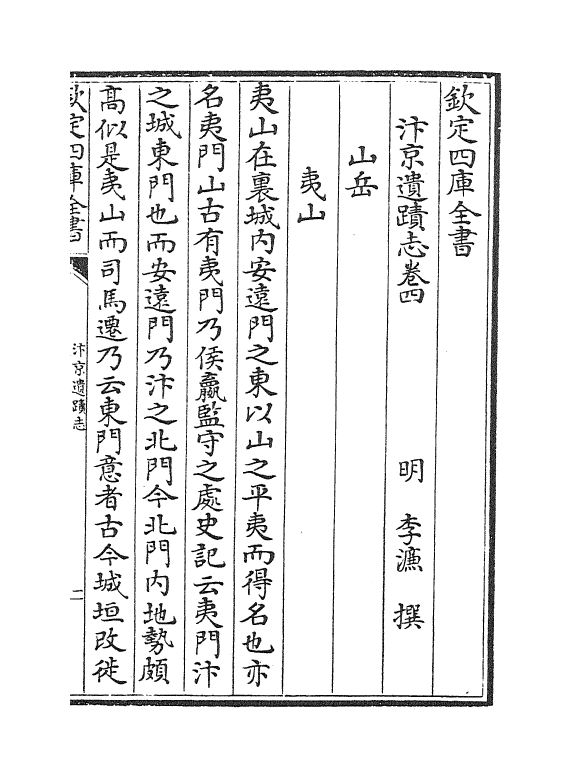 欽定四庫全書
汴京遺蹟志卷四
明 李濂 撰
山岳
夷山
夷山在裏城內安遠門之東以山之平夷而得名也亦
名夷門山古有夷門乃侯嬴監守之處史記云夷門汴
之城東門也而安遠門乃汴之北門今北門內地勢頗
高似是夷山而司馬遷乃云東門意者古今城垣改徙
欽定四庫全書
汴京遺蹟志